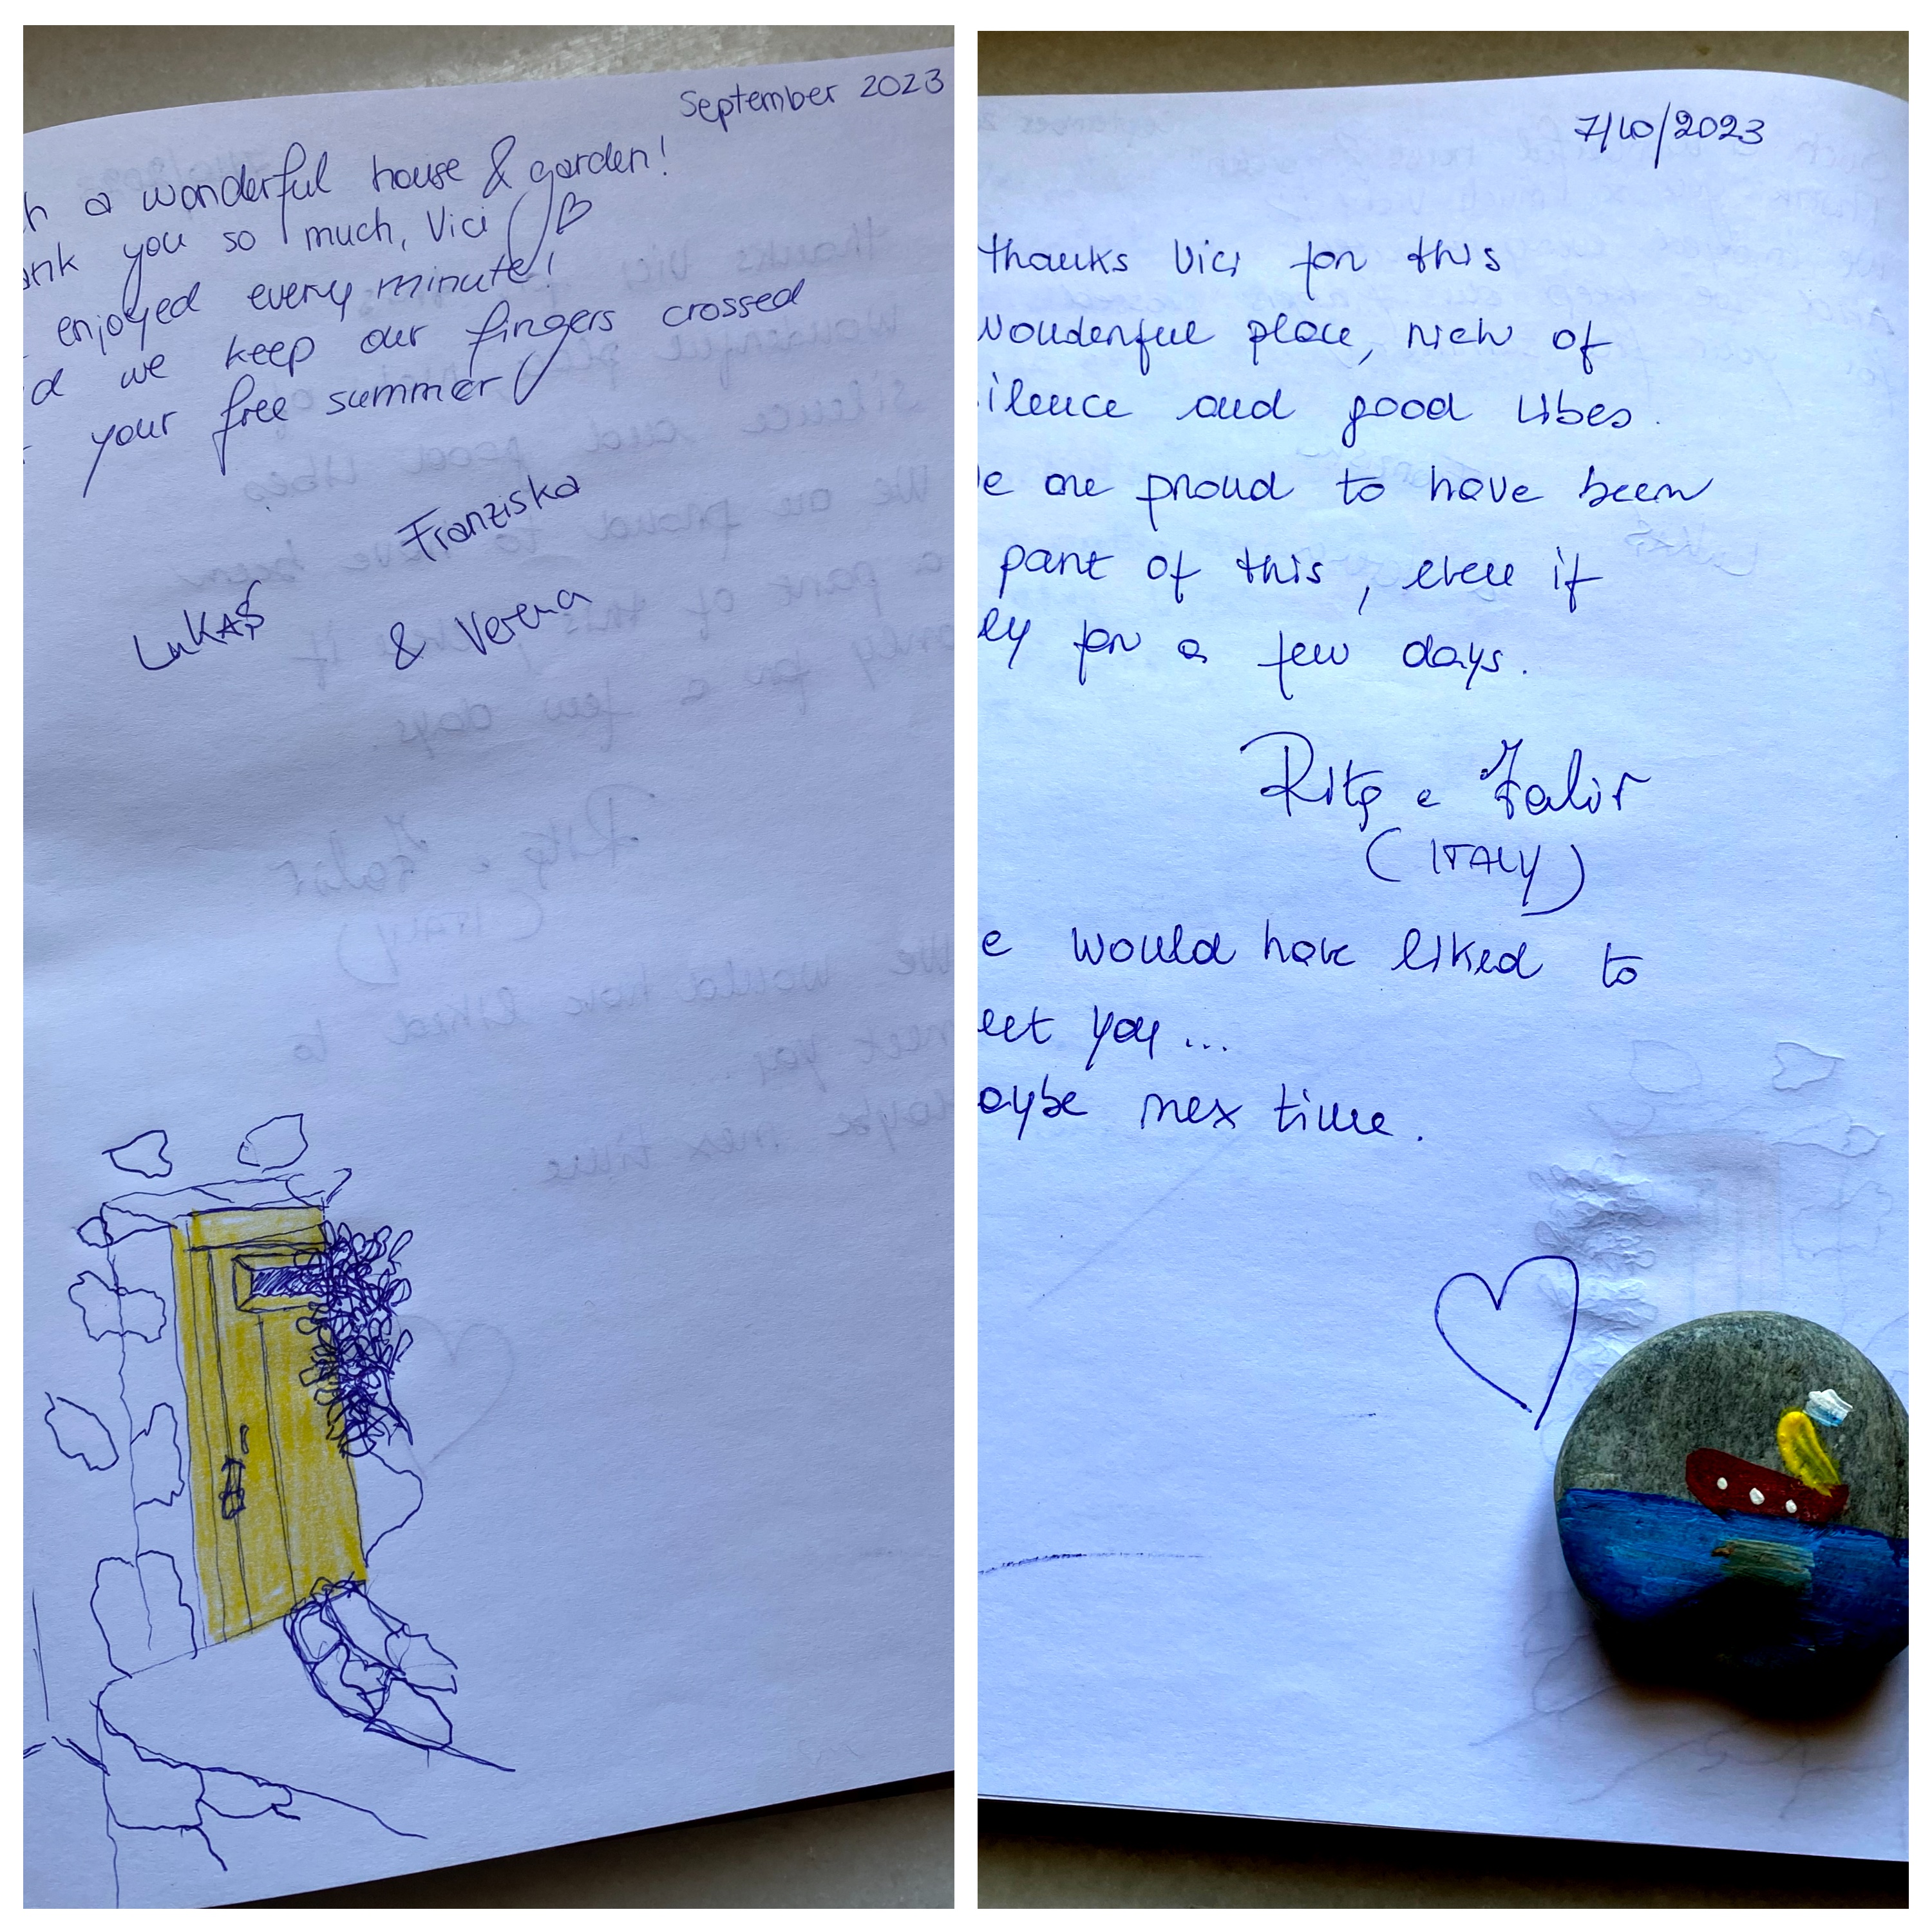 September 2023
h a wonderful house & garden!
ank you so much, Vici
enjoyed every minute!
d we keep our fingers crossed
your free summer
Franziska
LuKAS
& Verena
7/10/2023
thanks Vici for this
wonderful place, rich of
ilence and good vibes.
e are proud to have been
part of this, even if
ly for a few days.
Rita e
(ITALY)
e would have liked to
eet you...
aybe nex time.